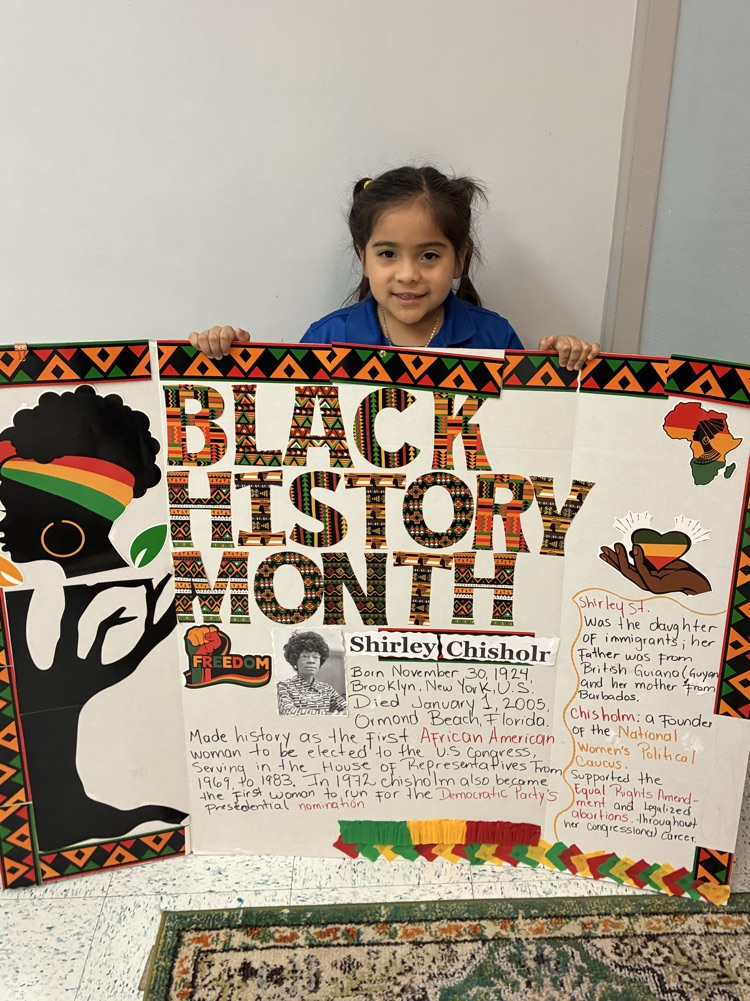 BLACK
HISTORY
MONTH
FREEDOM
Shirley Chisholr
Born November 30, 1924.
Brooklyn, New York, U.S.
Died January 1, 2005.
Ormond Beach, Florida.
Made history as the first African American
woman to be elected to the US Congress,
Serving in the House of Representatives from
1969, to 1983, In 1972 chisholm also became
the first woman to run for the Democratic Party's
Presedential nomination
Shirley St.
Was the daughter
of immigrants; her
Father was from
British Guiana (Guyan
and her mother from
Barbados.
Chisholm: a Founder
of the National
Women's Political
Caucus.
Supported the
Equal Rights Amend-
ment and legalized
abortions. throughout
her congressional career.